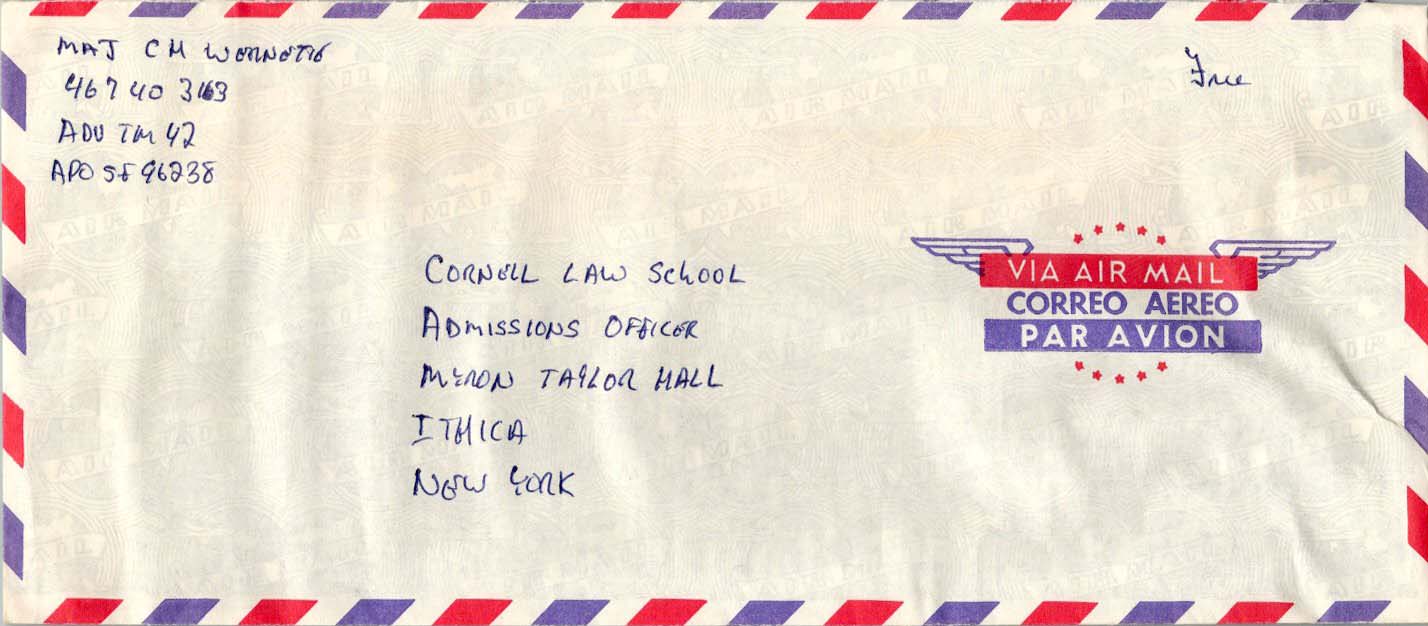 MAJ C H WERNETTE
467 40 3163
ADV TM 42
APO SF 96238
Free
CORNELL LAW SCHOOL
ADMISSIONS OFFICER
MYRON TAYLOR HALL
ITHICA
NEW YORK
VIA AIR MAIL
CORREO AEREO
PAR AVION